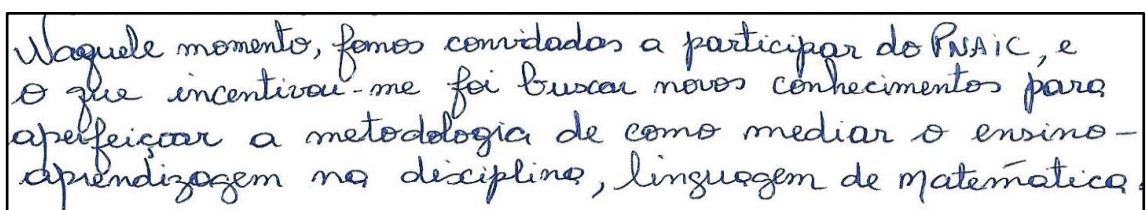 Naquele momento, fomos convidadas a participar do PNAIC, e
o que incentivou-me foi buscar novos conhecimentos para
aperfeiçoar a metodologia de como mediar o ensino-
aprendizagem na disciplina, linguagem de matemática.